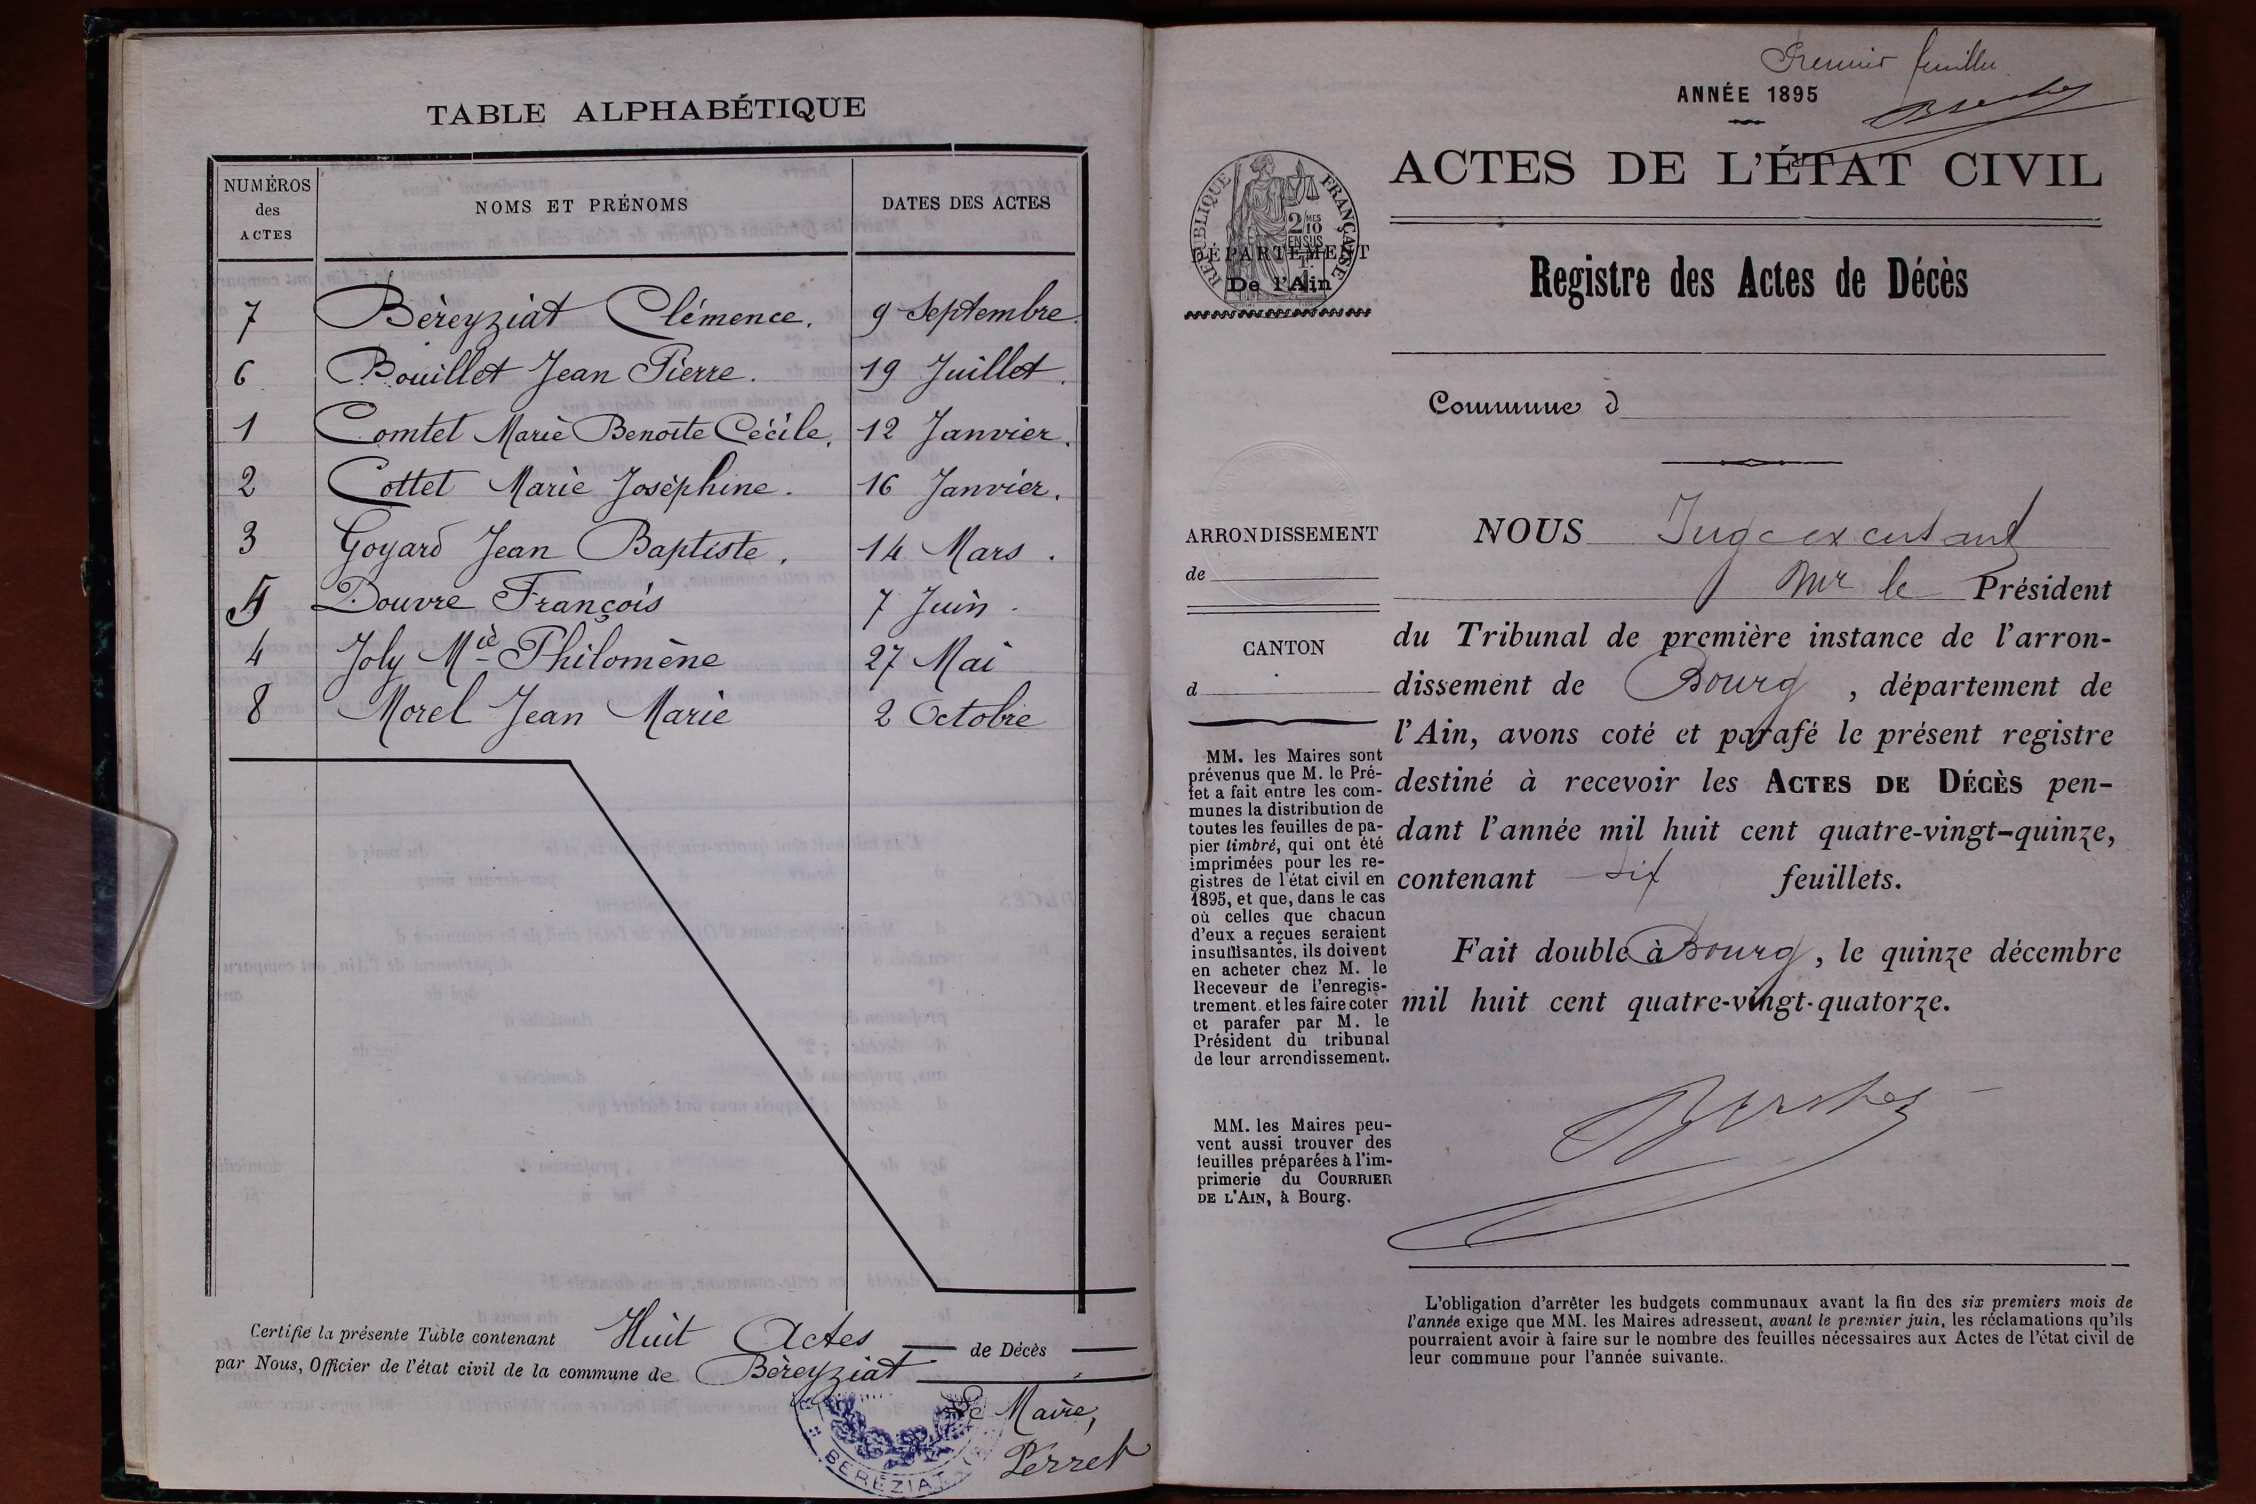 TABLE ALPHABÉTIQUE
NUMÉROS des ACTES NOMS ET PRÉNOMS DATES DES ACTES
7 Bèreyziat Clémence. 9 Septembre.
6 Bouillet Jean Pierre. 19 Juillet.
1 Comtet Marie Benoîte Cécile. 12 Janvier.
2 Cottet Marie Joséphine. 16 Janvier.
3 Goyard Jean Baptiste. 14 Mars.
5 Douvre François 7 Juin.
4 Joly Mie Philomène 27 Mai
8 Morel Jean Marie 2 Octobre
Certifié la présente Table contenant Huit Actes de Décès
par Nous, Officier de l'état civil de la commune de Bèreyziat
Le Maire,
Perret
BEREZIAT
Premier feuillet
ANNÉE 1895
ACTES DE L'ÉTAT CIVIL
RÉPUBLIQUE FRANÇAISE
2/10 MES
EN SUS
DÉPARTEMENT
De l'Ain
Registre des Actes de Décès
Commune d
ARRONDISSEMENT
de
CANTON
d
MM. les Maires sont
prévenus que M. le Pré-
fet a fait entre les com-
munes la distribution de
toutes les feuilles de pa-
pier timbré, qui ont été
imprimées pour les re-
gistres de l'état civil en
1895, et que, dans le cas
où celles que chacun
d'eux a reçues seraient
insuffisantes, ils doivent
en acheter chez M. le
Receveur de l'enregis-
trement et les faire coter
et parafer par M. le
Président du tribunal
de leur arrondissement.
MM. les Maires peu-
vent aussi trouver des
feuilles préparées à l'im-
primerie du COURRIER
DE L'AIN, à Bourg.
NOUS Juge excusant
Mr le Président
du Tribunal de première instance de l'arron-
dissement de Bourg, département de
l'Ain, avons coté et parafé le présent registre
destiné à recevoir les ACTES DE DÉCÈS pen-
dant l'année mil huit cent quatre-vingt-quinze,
contenant six feuillets.
Fait double à Bourg, le quinze décembre
mil huit cent quatre-vingt-quatorze.
L'obligation d'arrêter les budgets communaux avant la fin des six premiers mois de
l'année exige que MM. les Maires adressent, avant le premier juin, les réclamations qu'ils
pourraient avoir à faire sur le nombre des feuilles nécessaires aux Actes de l'état civil de
leur commune pour l'année suivante.